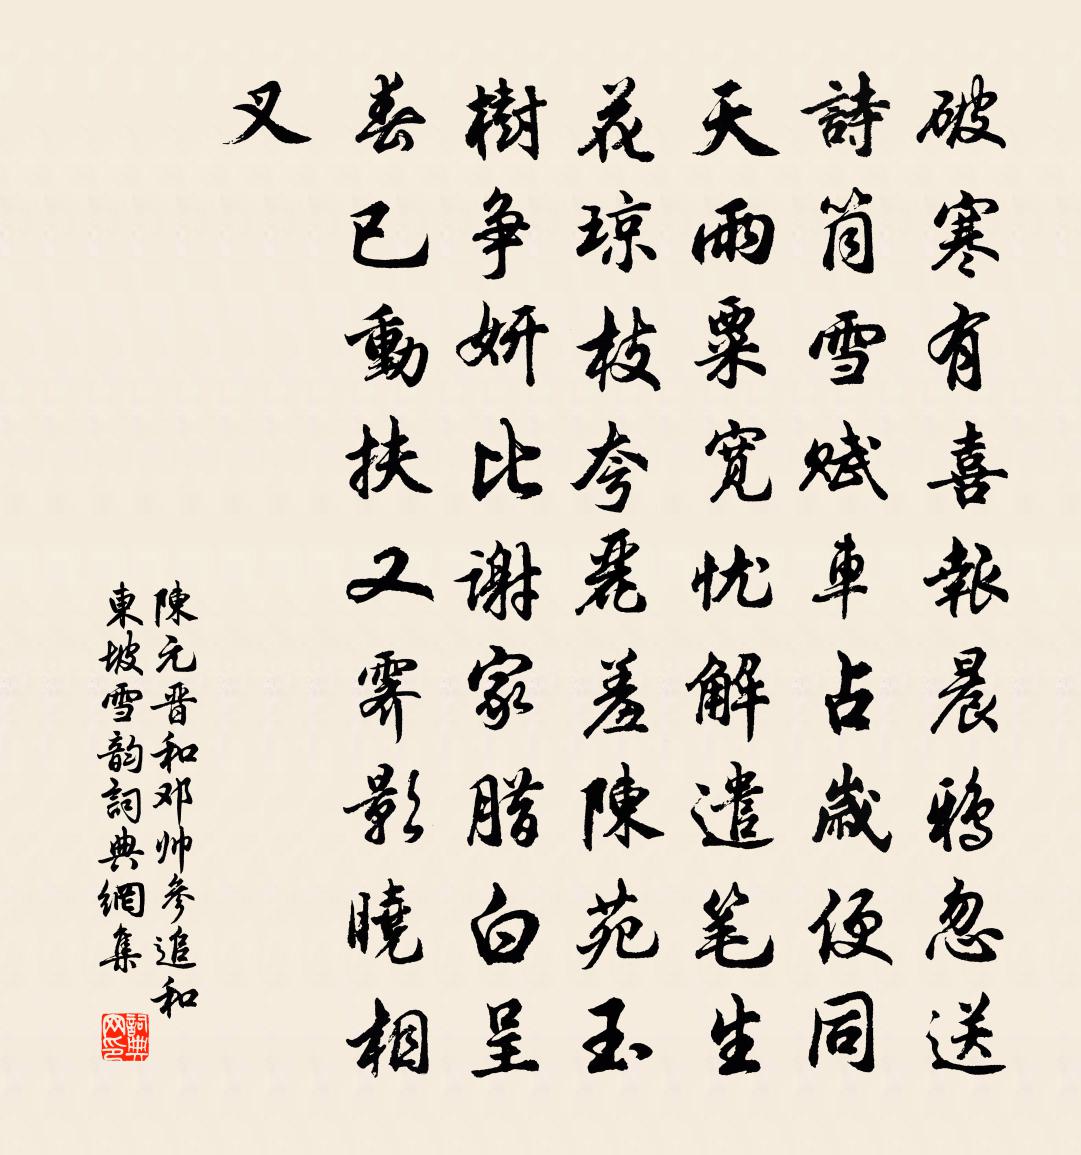 破寒有喜報晨鴉忽送
詩筒雪賦車占歲便同
天雨粟寬忧解遣笔生
花琼枝夸麗羞陳苑玉
樹争妍比谢家腊白呈
春已動扶又霁影曉相
叉
陳元晋和邓帅参追和
東坡雪韵詞典網集
詞典网印